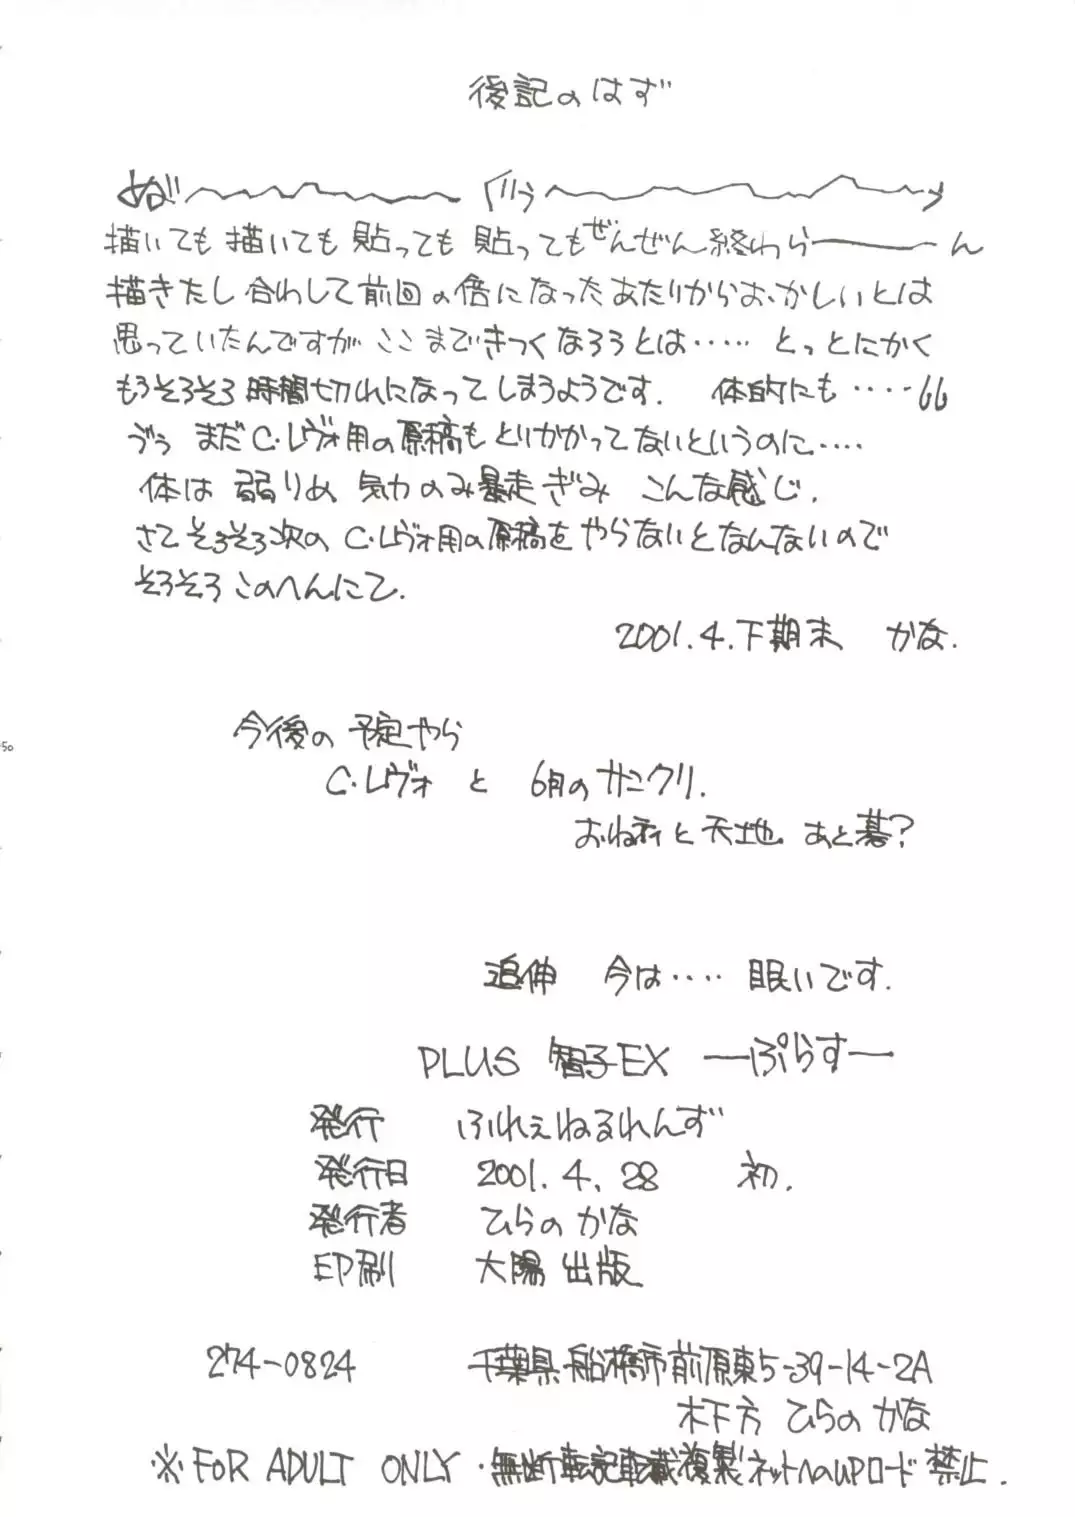 後記のはず
ぬ゛!!〜〜〜〜〜〜 ぐ!!う〜〜〜〜〜〜ッ
描いても描いても貼っても貼ってもぜんぜん終わら――――ん
描きたし合わして前回の倍になったあたりからおかしいとは
思っていたんですがここまできつくなろうとは‥‥‥ とっとにかく
もうそろそろ時間切れになってしまうようです. 体的にも‥‥66
ゔぅ まだC.レヴォ用の原稿もとりかかってないというのに‥‥
体は弱りめ気力のみ暴走ぎみ こんな感じ.
さてそろそろ次のC.レヴォ用の原稿をやらないとなんないので
そろそろこのへんにて.
2001.4.下期末 かな.
今後の予定やら
C.レヴォ と 6月のサンクリ.
おねネィと天地 あと碁?
50
追伸 今は‥‥ 眠いです.
PLUS 智子EX ―ぷらす―
発行 ふれぇねるれんず
発行日 2001.4.28 初.
発行者 ひらのかな
印刷 大陽出版
274-0824 千葉県船橋市前原東5-39-14-2A
木下方 ひらの かな
※FOR ADULT ONLY・無断転記転載複製ネットへのUPロード禁止.